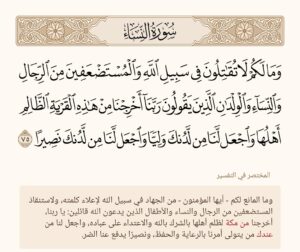 سُورَةُ النِّسَاءِ
وَمَا لَكُمْ لَا تُقَاتِلُونَ فِي سَبِيلِ اللَّهِ وَالْمُسْتَضْعَفِينَ مِنَ الرِّجَالِ
وَالنِّسَاءِ وَالْوِلْدَانِ الَّذِينَ يَقُولُونَ رَبَّنَا أَخْرِجْنَا مِنْ هَٰذِهِ الْقَرْيَةِ الظَّالِمِ
أَهْلُهَا وَاجْعَل لَّنَا مِن لَّدُنكَ وَلِيًّا وَاجْعَل لَّنَا مِن لَّدُنكَ نَصِيرًا ٧٥
المختصر في التفسير
وما المانع لكم - أيها المؤمنون - من الجهاد في سبيل الله لإعلاء كلمته، ولاستنقاذ
المستضعفين من الرجال والنساء والأطفال الذين يدعون الله قائلين: يا ربنا،
أخرجنا من مكة لظلم أهلها بالشرك بالله والاعتداء على عباده، واجعل لنا من
عندك من يتولى أمرنا بالرعاية والحفظ، ونصيرًا يدفع عنا الضر.